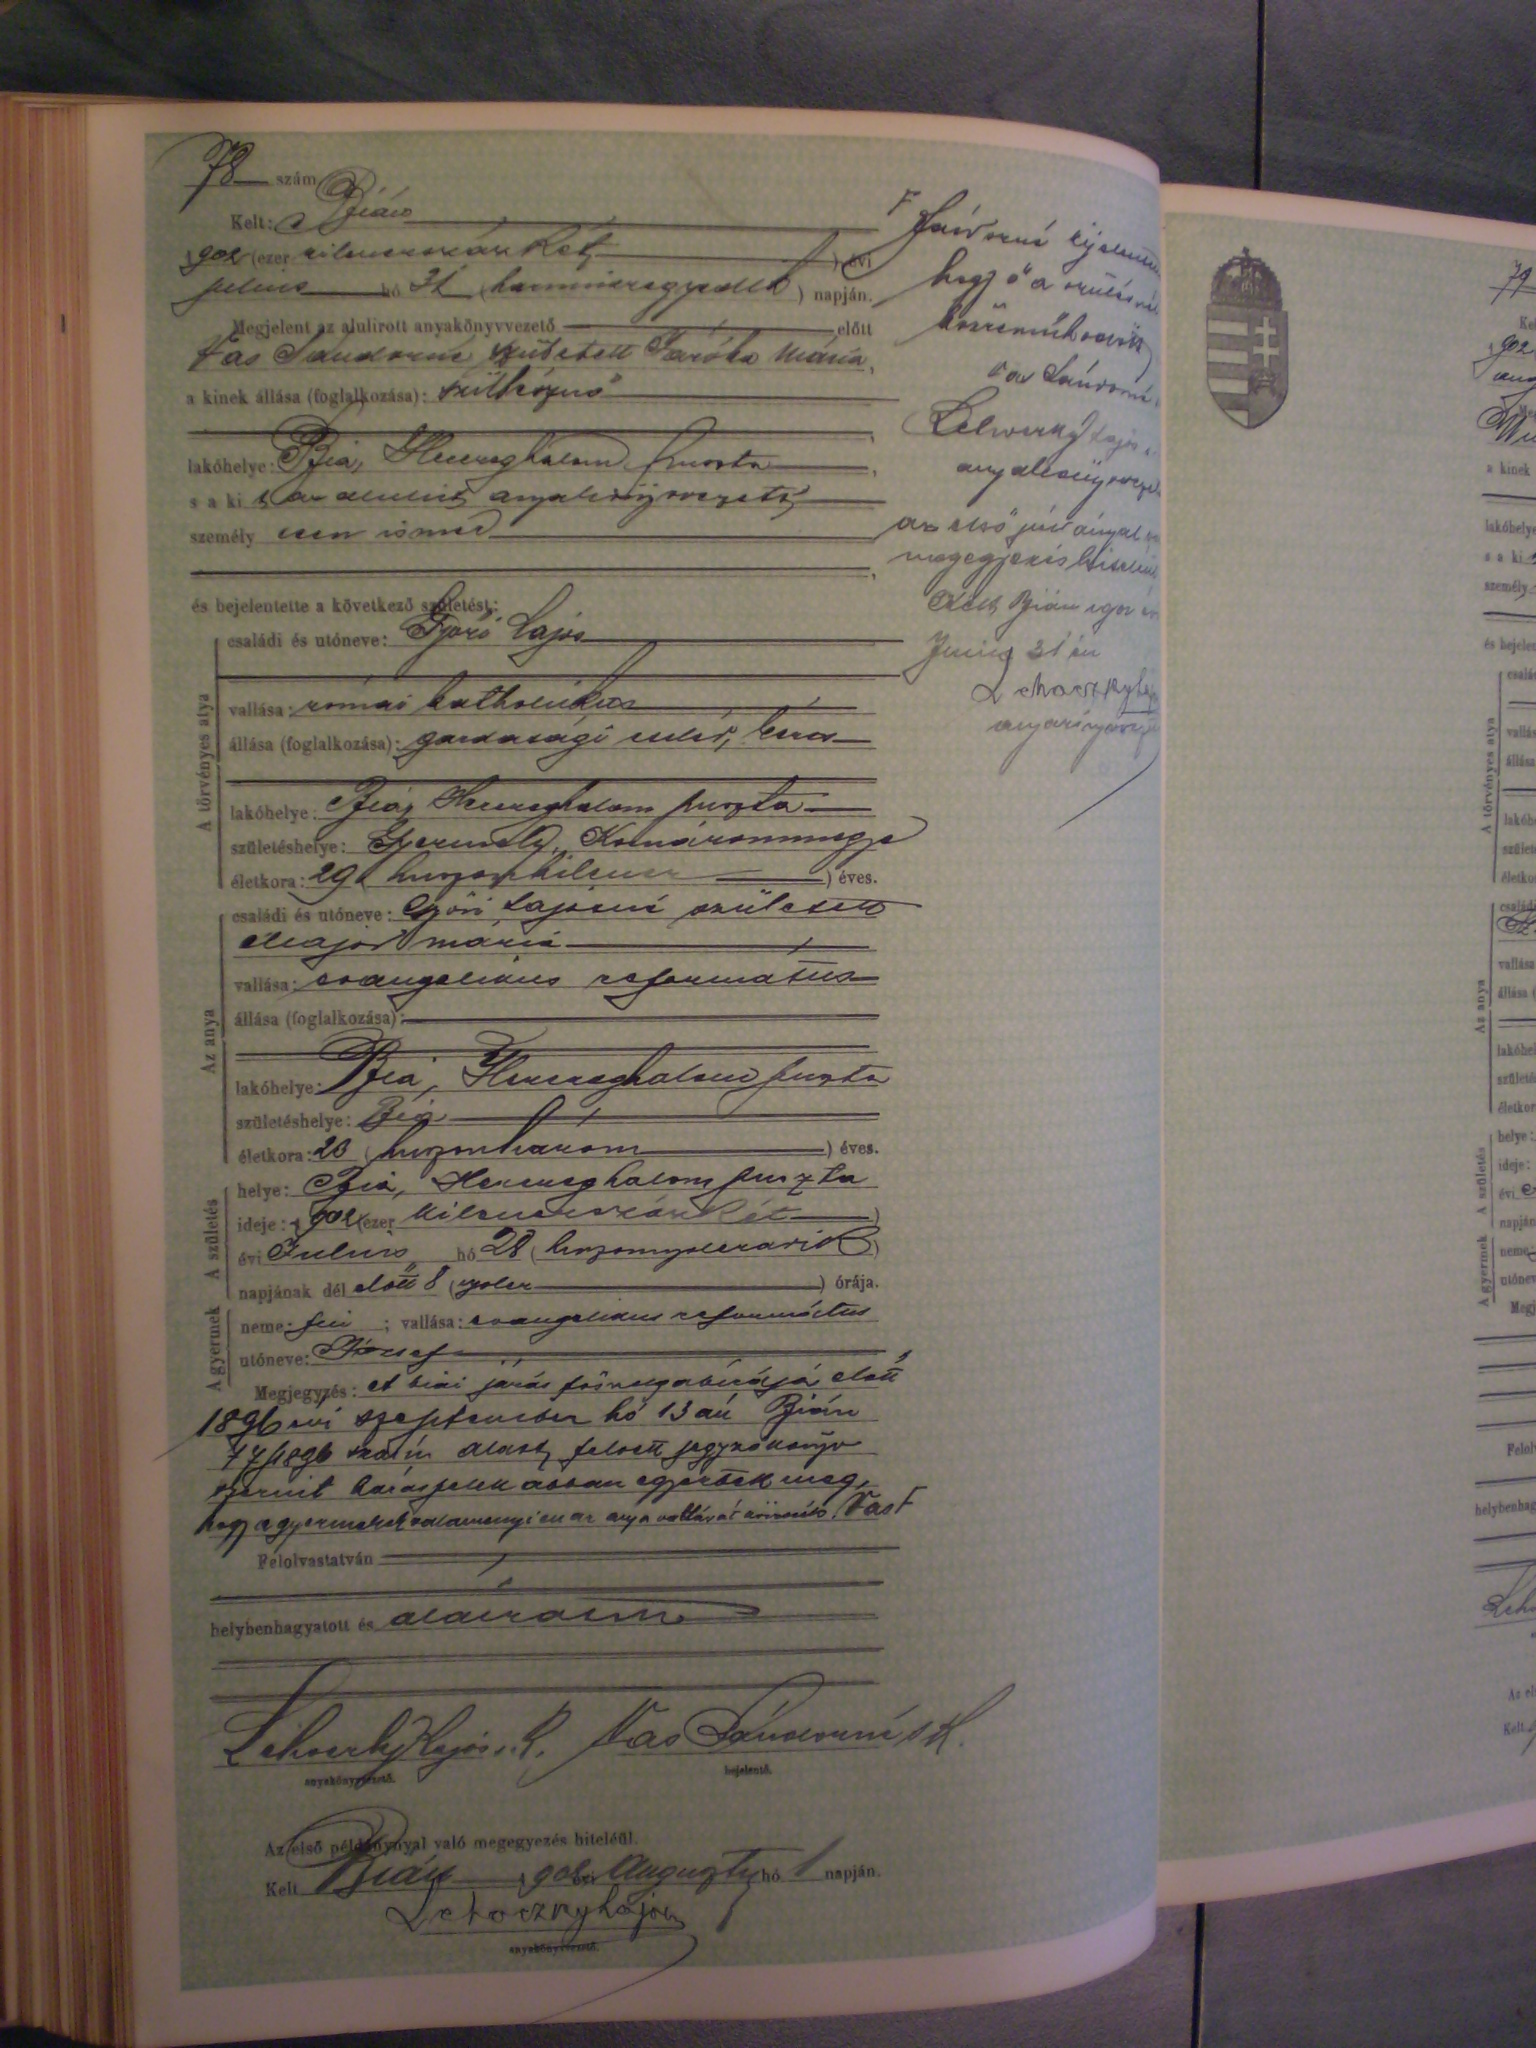 78 szám
Kelt: Bián
1902 (ezer kilencszázkét) évi
julius hó 31 (harminczegyedik) napján.
Megjelent az alulirott anyakönyvvezető előtt
Vas Sándorné született Mária,
a kinek állása (foglalkozása): szülésznő
lakóhelye: Bia, Herczeghalom puszta,
s a ki t az alulirt anyakönyvvezető
személyesen ismer
és bejelentette a következő születést:
A törvényes atya
családi és utóneve: Győri Lajos
vallása: római katholikus
állása (foglalkozása): gazdasági cseléd,
lakóhelye: Bia, Herczeghalom puszta
születéshelye: Gyermely, Komárommegye
életkora: 29 (huszonkilencz) éves.
Az anya
családi és utóneve: Győri Lajosné született
Major Mária
vallása: evangelikus református
állása (foglalkozása):
lakóhelye: Bia, Herczeghalom puszta
születéshelye: Bia
életkora: 23 (huszonhárom) éves.
A születés
helye: Bia, Herczeghalom puszta
ideje: 1902 (ezer kilenczszázkét)
évi Julius hó 28 (huszonnyolczadik)
napjának dél előtt 8 (nyolcz) órája.
A gyermek
neme: fiu; vallása: evangelikus református
utóneve: József
Megjegyzés: A biai járás főszolgabirája előtt
1896 évi szeptember hó 13 án Bián
77/1896 szám alatt felvett jegyzőkönyv
szerint házasfelek abban egyeztek meg,
hogy a gyermekek valamennyien az anya vallását Vas F
Felolvastatván
helybenhagyatott és aláiratott
Lehoczky Lajos s. k. Vas Sándorné s k.
anyakönyvvezető. bejelentő.
Az első példánynyal való megegyezés hiteléül.
Kelt Bián 1902 évi Augusztus hó 1 napján.
Lehoczky Lajos
anyakönyvvezető.
F Sándorné kijelente
hogy ő a szülésnél
közreműködött
Vas Sándorné
Lehoczky Lajos
anyakönyvvezet
az első példánnyal
megegyezés hiteléül
Kelt Bián 1902 év
31 én
Lehoczky Laj
79
Kel
902
aug
a kinek
lakóhelye
s a ki
személy
és bejelen
A törvényes atya
csalá
vallás
állása
lakóhe
születé
életko
Az anya
családi
vallása
állása (
lakóhel
születé
életkor
A születés
helye:
ideje:
évi
napján
A gyermek
neme
utónev
Megj
Felol
helybenhag
Leho
Az el
Kelt